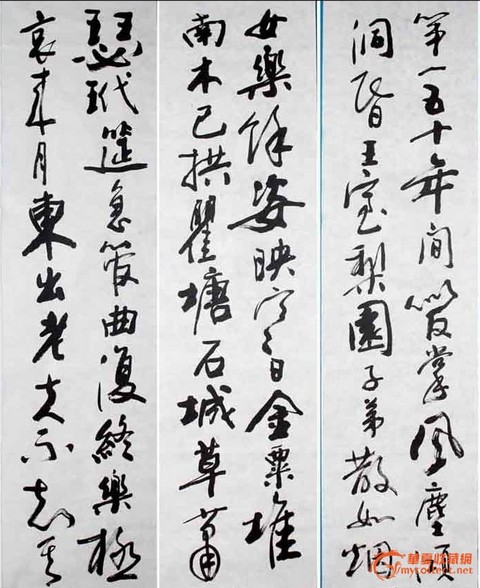 第一五十年间似反掌風塵澒
洞昏王室梨園子弟散如烟
女樂餘姿映寒日金粟堆
南木已拱瞿塘石城草蕭
瑟玳筵急管曲復終樂極
哀来月東出老夫不知其
華夏收藏網
mycollect.net